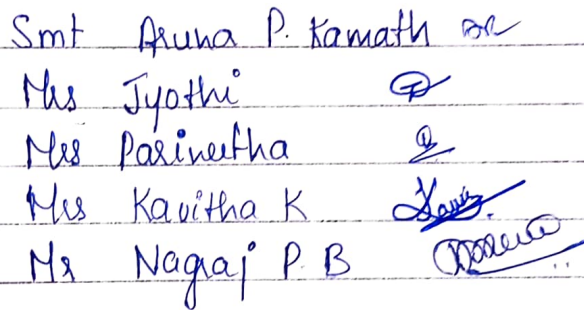 Smt Aruna P. Kamath
Mrs Jyothi
Mrs Parineetha
Mrs Kavitha K
Mr Nagraj P. B